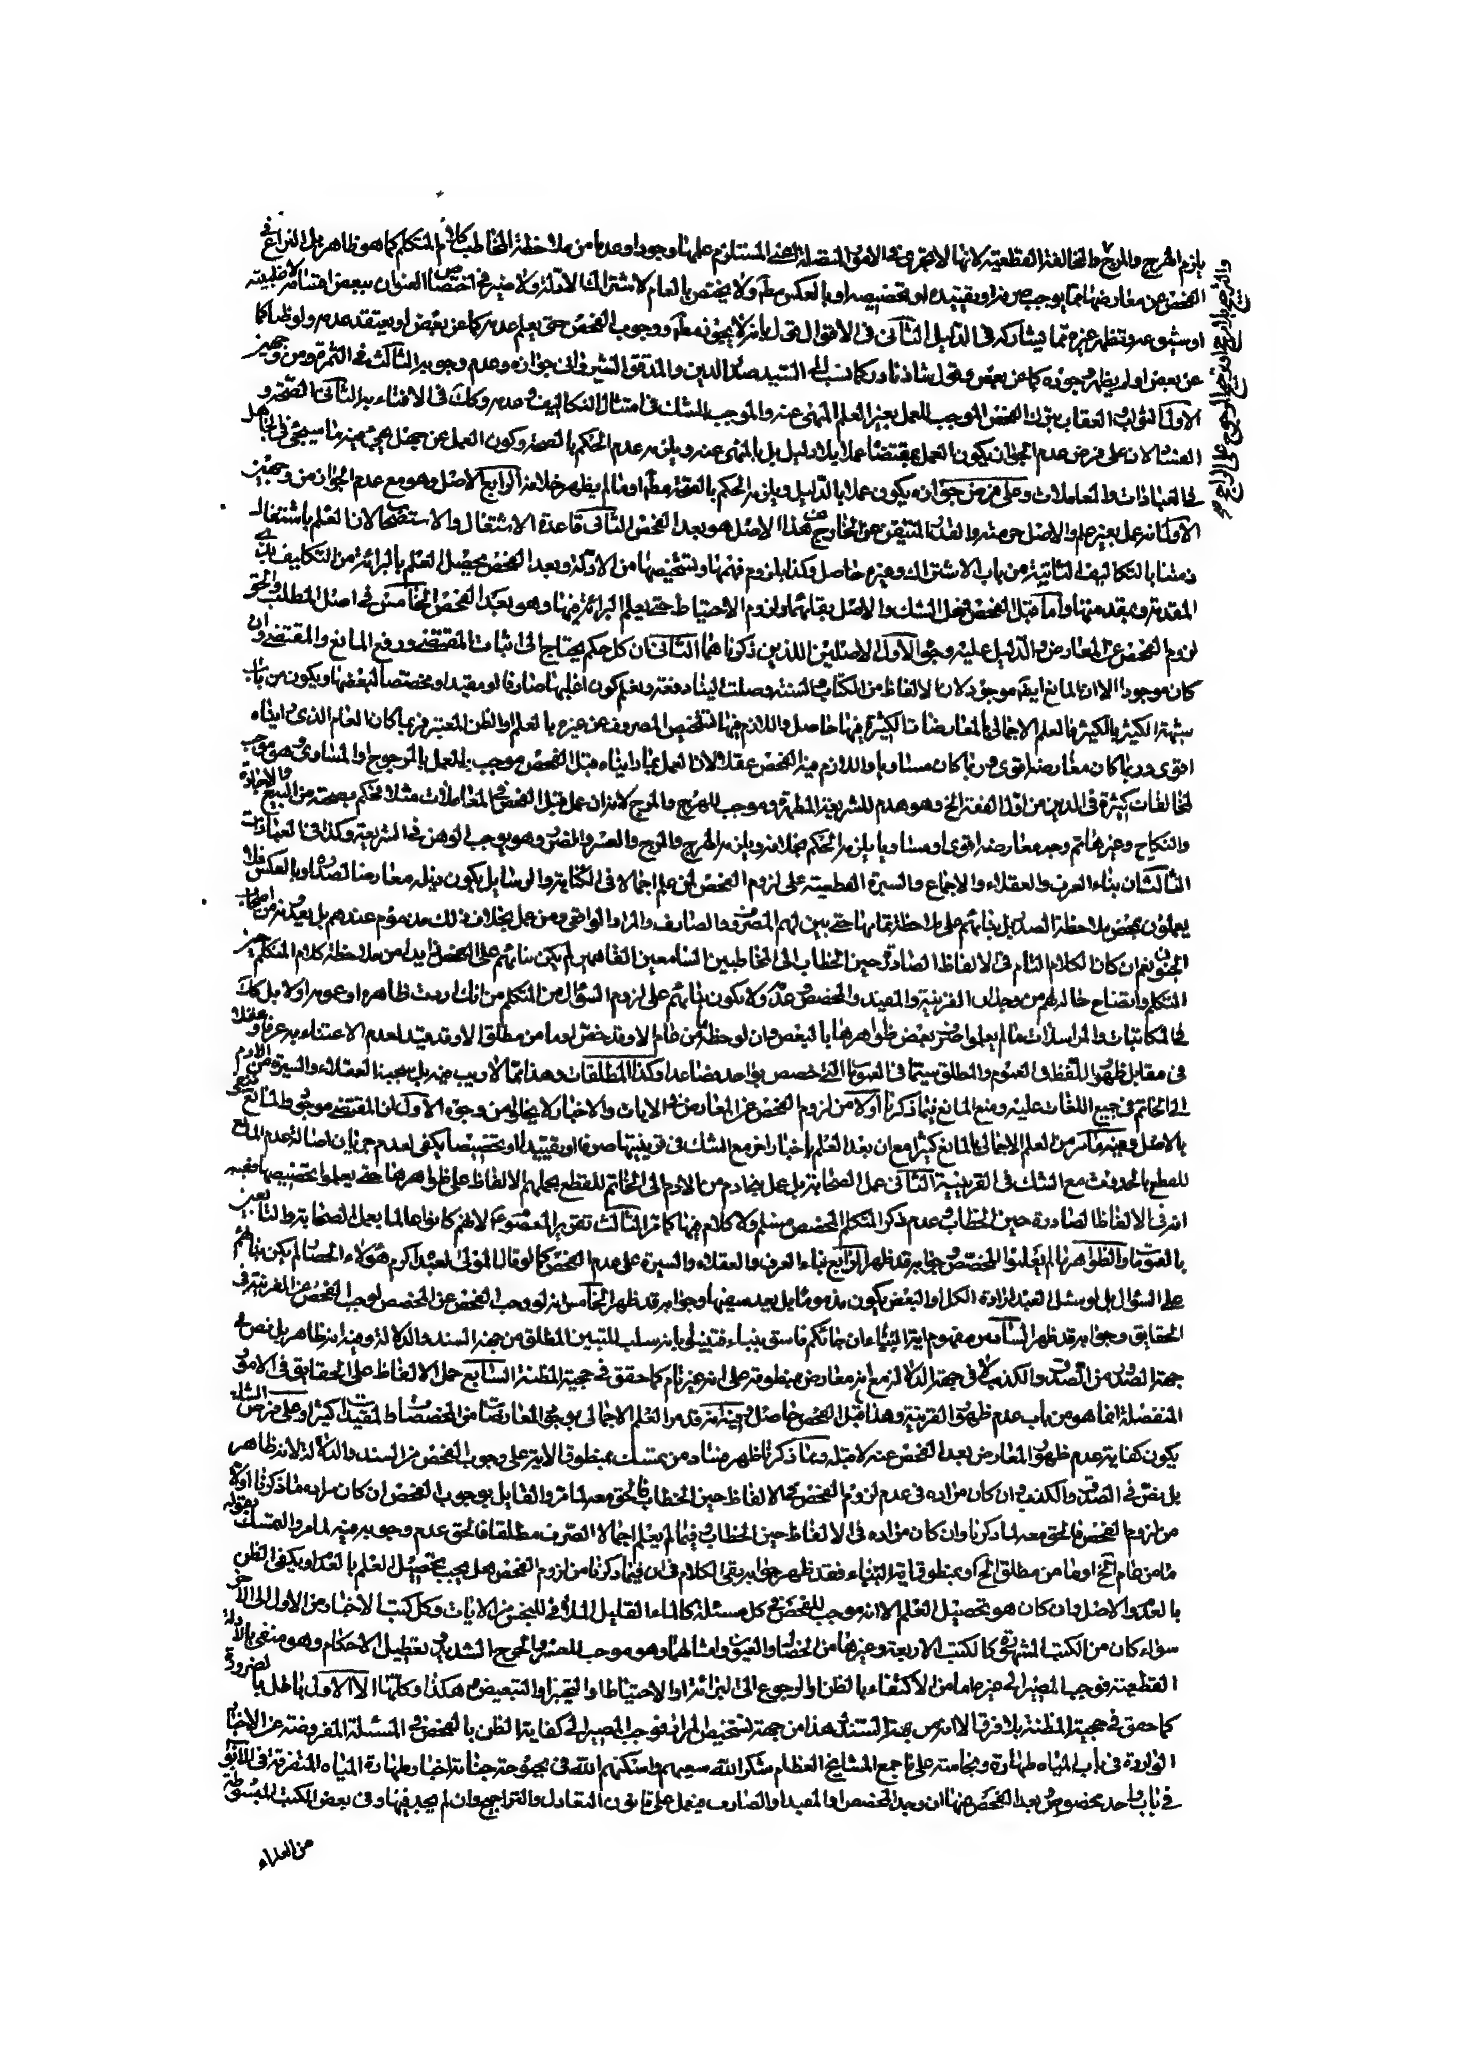 يلزم الحرج والمرج والمخالفة القطعية لانها لا يجرى فى الامور المنفصلة المستلزم علمنا وجودا وعدما من ملاحظة المخاطب كلام المتكلم كما هو ظاهر بل النزاع فى
الفحص عن معارضها مما يوجب صرفها او تقييده او تخصيصه او بالعكس مط ولا يختص بالعام لاشتراك الادلة ولا ضير فى اختصاص العنوان ببعض
او سبق عهد وتظهر غيره مما يشاركه فى الدليل الثانى فى الاقوال قيل بانه لا يجوز مط ووجوب الفحص حتى يعلم عدمه كما عن بعض او يعتقد عدمه ولو ظنا كما
عن بعض او لم يظهر وجوده كما عن بعض وقيل شاذ نادر كما نسب الى السيد صدر الدين والمدقق الشيروانى جوازه وعدم وجوبه الثالث فى الثمرة ومن وجهين
الاول الثواب العقاب بترك الفحص الموجب للعمل بغير العلم المنهى عنه والموجب للشك فى امتثال التكاليف وعدمه وكك فى الافتاء به الثانى الصحة و
الفساد لان على فرض عدم الجواز يكون العمل بمقتضاه عملا بلا دليل بل بالمنهى عنه ويلزمه عدم الحكم بالصحة وكون العمل عن جهل يجىء فيه ما سيجىء فى الجاهل
فى العبادات والمعاملات وعلى فرض جوازه يكون عملا بالدليل ويلزمه الحكم بالصحة مط او ما لم يظهر خلافه الرابع الاصل وهو مع عدم الجواز من وجهين
الاول انه عمل بغير علم والاصل حرمته والقدر المتيقن عن الخارج من هذا الاصل هو بعد الفحص الثانى قاعدة الاشتغال والاستصحاب لان العلم باشتغال
ذمتنا بالتكاليف الثابتة من باب الاشتراك وغيره حاصل وكذا بلزوم فهمها وتشخيصها من الادلة وبعد الفحص يحصل العلم بالبرائة من التكاليف
المقدمة وبعد منها واما قبل الفحص فحل الشك والاصل بقائهما ولزوم الاحتياط حتى يعلم البرائة منها وهو بعد الفحص الخامس فى اصل المطلب والحق
لزوم الفحص عن المعارض والدليل عليه وجوه الاول الاصلين اللذين ذكرناهما الثانى ان كل حكم يحتاج الى اثبات المقتضى ورفع المانع والمقتضى وان
كان موجودا الا ان المانع ايضا موجود لان الالفاظ من الكتاب والسنة وصلت الينا دفعة ونعلم كون اغلبها صارفا او مقيدا او مخصصا لبعضها ويكون من باب
شبهة الكثير بالكثير فالعلم الاجمالى بالمعارضات الكثيرة فيها حاصل واللازم فيها تشخيص المصروف عن غيره بالعلم او الظن المعتبر فربما كان العام الذى رايناه
اقوى وربما كان معارضه اقوى وربما كان مساويا واللازم فيه الفحص عقلا لان العمل بما رايناه قبل الفحص موجب للعمل بالمرجوح او المساوى وهو موجب
لمخالفات كثيرة فى الدين من اول الفقه الخ وهو هدم للشريعة المطهرة وموجب للهرج والمرج لانه ان عمل قبل الفحص فى المعاملات مثلا فحكم بصحته من البيع والاجارة
والنكاح وغيرها ثم وجد معارضه اقوى او مساويا يلزم الحكم بخلافه ويلزمه الهرج والمرج والعسر والضرر وهو يوجب الوهن فى الشريعة وكذا فى العبادات
الثالث ان بناء العرف والعقلاء والاجماع والسيرة القطعية على لزوم الفحص لمن علم اجمالا فى الكتابة والرسايل يكون ذيله معارضا لصدره او بالعكس فلا
يعملون بمحض ملاحظة الصدر بل بنائهم على ملاحظة تمامها حتى يبين لهم المصروف والصارف والمراد الواقعى ومن عمل بخلاف ذلك مذموم عندهم بل يعدونه من اصحاب
الجنون نعم ان كان الكلام التام فى الالفاظ الصادرة حين الخطاب الى المخاطبين السامعين الفاهمين لم يكن بنائهم على الفحص ازيد من ملاحظة كلام المتكلم حين
التكلم واتضاح حاله لهم من وجدان القرينة والمقيد والمخصص وعدمه ولا يكون بنائهم على لزوم السؤال من المتكلم من انك اردت ظاهره او عمومه او لا بل كك
فى المكاتبات والمراسلات ما لم يعلموا ضرر بعض ظواهرها بالبعض وان لوحظ من عام الا وقد خص او ما من مطلق الا وقد قيد لعدم الاعتناء به عرفا وعقلا
فى مقابل ظهور اللفظ فى العموم والمطلق سيما فى العمومات التى خصص بواحد فصاعدا وكذا المطلقات وهذا مما لا ريب فيه بل سجية العقلاء والسيرة من الادم
الى الخاتم فى جميع اللغات عليه ومنع المانع فيما ذكرنا اولا من لزوم الفحص عن المعارض فى الايات والاخبار لا يخلوا من وجوه الاول ان المقتضى موجود والمانع مدفوع
بالاصل وفيه ما مر من العلم الاجمالى بالمانع كثيرا مع ان بعد العلم باخبار اخر مع الشك فى قرينيتها صرفا او تقييدا او تخصيصا يكفى لعدم جريان اصالة عدم المانع
للقطع بالحدوث مع الشك فى القرينية الثانى عمل الصحابة بل عمل بنى ادم من الادم الى الخاتم للقطع بحملهم الالفاظ على ظواهرها حتى يعملوا بتخصيصها وفيه
انه فى الالفاظ الصادرة حين الخطاب وعدم ذكر المتكلم المخصص مسلم ولا كلام فيها كما مر الثالث تقرير المعصوم لانهم كانوا عالما بعمل الصحابة والتابعين
بالعمومات والظواهر ما لم يعلموا المخصص وجوابه قد ظهر الرابع بناء العرف والعقلاء والسيرة على عدم الفحص كما لو قال المولى لعبده اكرم هؤلاء الحضار لم يكن بنائهم
على السؤال بل لو سئل العبد ارادة الكل او البعض يكون مذموما بل يعد سفيها وجوابه قد ظهر الخامس انه لو وجب الفحص عن المخصص لوجب الفحص عن القرينة فى
الحقايق وجوابه قد ظهر السادس مفهوم اية النباء ان جائكم فاسق بنباء فتبينوا بانه سلب للتبين المطلق من جهة السند والدلالة وفيه انه ظاهر بل نص فى
جهة الصدور من الصدق والكذب لا فى جهة الدلالة مع انه معارض بمنطوقه على انه غير تام كما حقق فى حجية المظنة السابع حمل الالفاظ على الحقايق فى الامور
المنفصلة انما هو من باب عدم ظهور القرينة وهذا قبل الفحص حاصل وفيه انه قد مر العلم الاجمالى بوجود المعارضات من المخصصات والمقيدات كثيرا وعلى فرض الشك
يكون كفاية عدم ظهور المعارض بعد الفحص عنه لا قبله ومما ذكرنا ظهر فساد من يتمسك بمنطوق الاية على وجوب الفحص من السند والدلالة لانه ظاهر
بل نص فى الصدق والكذب وان كان مراده فى عدم لزوم الفحص فى الالفاظ حين الخطاب فالحق معه لما مر والقايل بوجوب الفحص ان كان مراده ما ذكرنا اولا
من لزوم الفحص فالحق معه لما ذكرنا وان كان مراده فى الالفاظ حين الخطاب فيما لم يعلم اجمالا الصرف مطلقا فالحق عدم وجوبه فيه لما مر والتمسك بقوله
ما من عام الخ او ما من مطلق الخ او بمنطوق اية النباء فقد ظهر جوابه بقى الكلام فى ان فيما ذكرنا من لزوم الفحص هل يجب تحصيل العلم بالعدم او يكفى الظن
بالعدم والاصل وان كان هو تحصيل العلم الا انه موجب للفحص فى كل مسئلة كالماء القليل الملاقى للنجس من الايات وكل كتب الاخبار من الاول الى الاخر
سواء كان من الكتب المشهورة كالكتب الاربعة وغيرها من الخصال والعيون وامثالهما وهو موجب للعسر والحرج الشديدين وتعطيل الاحكام وهو منفى بالادلة
القطعية فوجب المصير الى غيره اما من الاكتفاء بالظن او الرجوع الى البرائة او الاحتياط او التخيير او التبعيض وهكذا وكلها الا الاول باطل بالضرورة
كما حقق فى حجية المظنة بلا فرق الا انه من جهة السند وهذا من جهة تشخيص المراد فوجب المصير الى كفاية الظن بالفحص فى المسئلة المفروضة عن الاخبار
الواردة فى باب المياه طهارة ونجاسة على ما جمع المشايخ العظام شكر الله سعيهم واسكنهم الله فى بحبوحة جنانه اخبار طهارة المياه المتفرقة فى الابواب
فى باب واحد مخصوص وبعد الفحص عنها ان وجد المخصص او المقيد او الصارف فيعمل على قانون التعادل والتراجيح وان لم يجد فيها وفى بعض الكتب المبسوطة
من العلماء